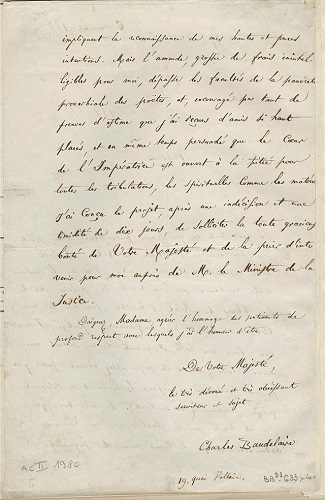 impliquent la reconnaissance de mes hautes et pures
intentions. Mais l'amende, grossie de frais inintel-
ligibles pour moi, dépasse les facultés de la pauvreté
proverbiale des poëtes, et, encouragé par tant de
preuves d'estime que j'ai reçues d'amis si haut
placés, et en même temps persuadé que le Cœur
de l'Impératrice est ouvert à la pitié pour
toutes les tribulations, les spirituelles comme les matérielles
j'ai conçu le projet, après une indécision et une
timidité de dix jours, de solliciter la toute gracieuse
bonté de Votre Majesté et de la prier d'inter-
venir pour moi auprès de M. le Ministre de la
Justice.
Daignez, Madame agréer l'hommage des sentiments de
profond respect avec lesquels j'ai l'honneur d'être
De Votre Majesté,
le très dévoué et très obéissant
serviteur et sujet
Charles Baudelaire
19. quai Voltaire.
AE II 1980